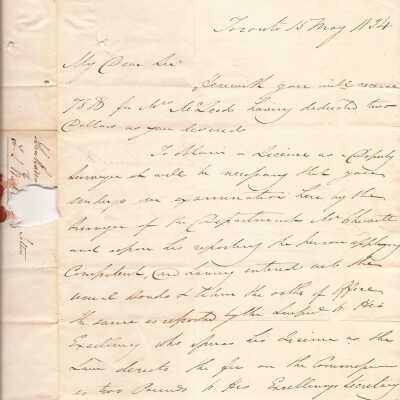 Toronto 15 May 1834
My Dear Sir
Herewith you will receive
for Mrs McLeod having deducted two
Dollars as you desired
To obtain a License as Deputy
Surveyor it will be necessary that you
undergo an examination here by the
Surveyor of the Department Mr Chewett
and upon his reporting the person applying
Competent, and having entered into the
usual bonds & taken the oaths of office
the same is reported by the to His
Excellency who issues his License as the
Law directs the fee on the
is two Pounds to His Excellencys Secretary